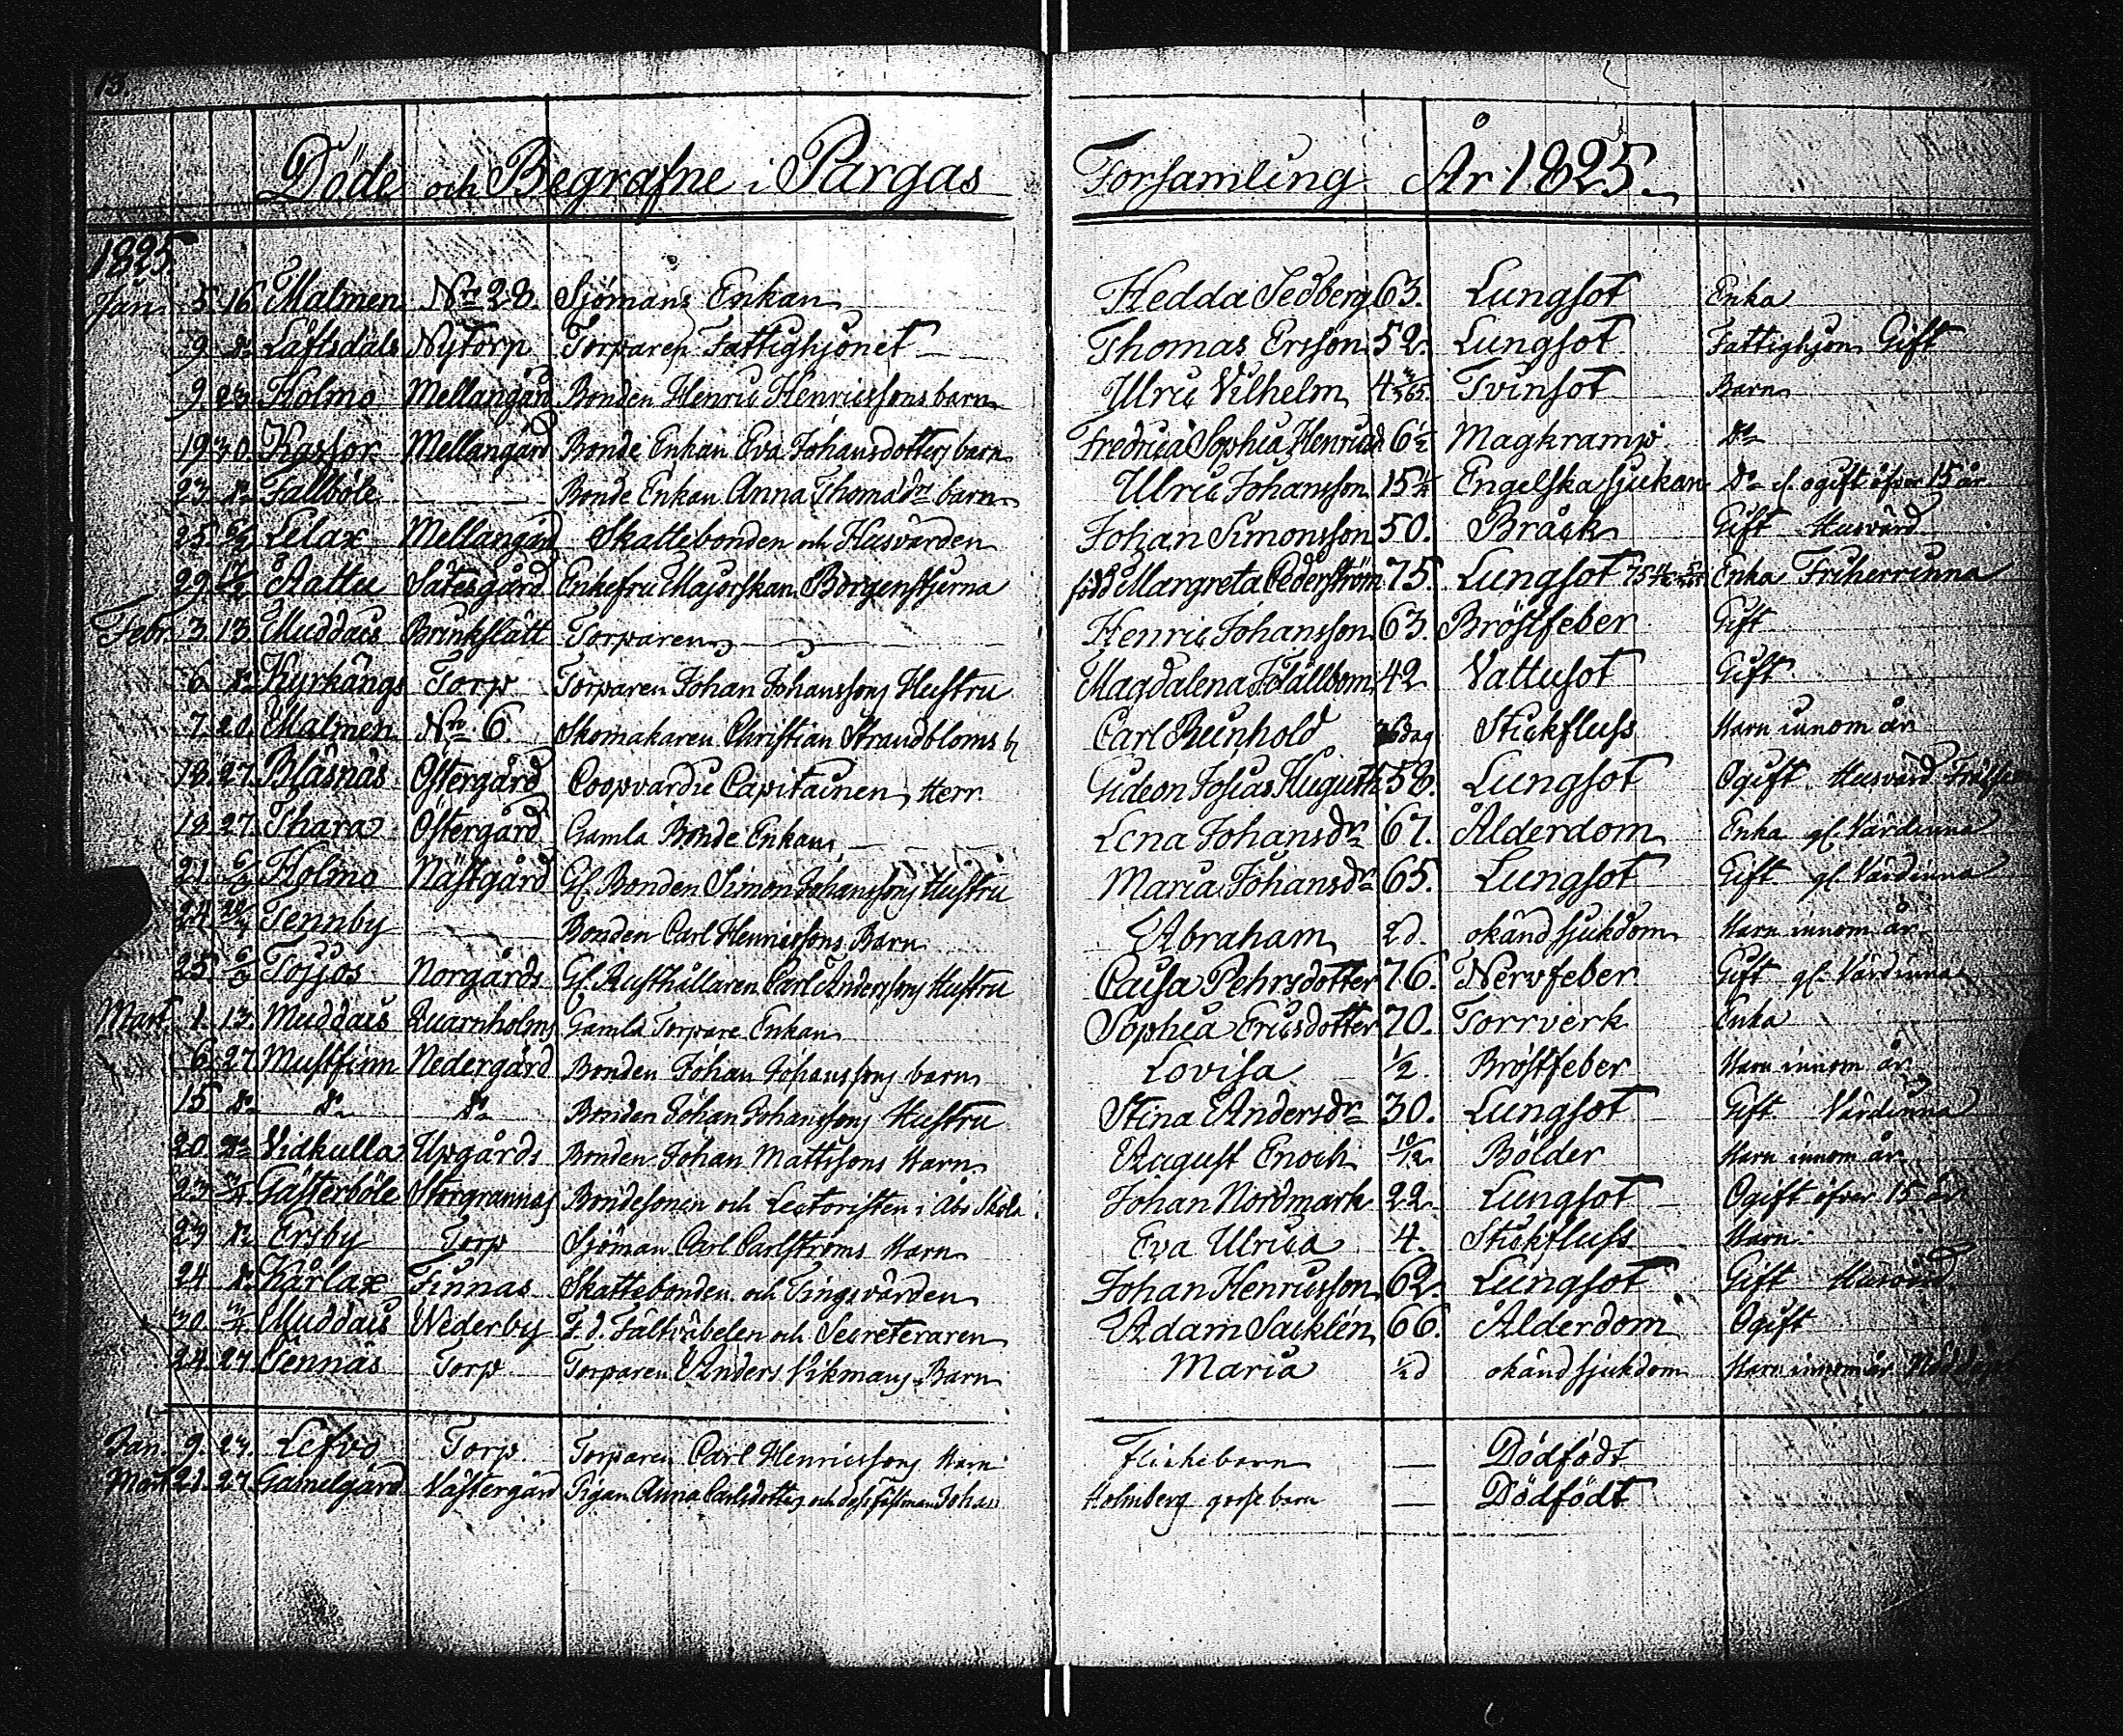 13.
Döde och Begrafne i Pargas Forsamling År 1825.
1825.
Jan. 5. 16. Malmen No 28. Sjömans Enkan Hedda Sedberg 63. Lungsot Enka
9. do Låftsdals Nytorp Torparen Fattighjonet Thomas Ersson 52. Lungsot Fattighjon Gift
9. 23. Holmo Mellangård Bonden Henric Henricssons barn Ulric Vilhelm 4 Tvinsot Barn
19. 30. Kassor Mellangård Bonde Enkan Eva Johansdotters barn Fredrica Sophia Henricsd 6½ Magkramp do
23. do Fallböle Bonde Enkan Anna Thomasdr barn Ulric Johansson 15¼ Engelska sjukan do el. ogift öfver 15 år
25. 6/2 Lelax Mellangård Skattebonden och Husvärden Johan Simonsson 50. Bråck Gift Husvärd
29. Åattu Sätesgård Enkefru Majorskan Borgenstjerna född Margreta Cederström 75. Lungsot Enka Friherrinna
Febr. 3. 13. Muddais Brinkslätt Torparen Henric Johansson 63. Bröstfeber Gift
6. do Kyrkängs Torp Torparen Johan Johanssons Hustru Magdalena Fotällbom 42 Vattusot Gift
7. 20. Malmen No 6. Skomakaren Christian Strandbloms b. Carl Reinhold dag Stickfluss Barn innom år
13. 27. Bläsnäs Östergård Coopvardie Capitainen Herr Gideon Josias Huguth 58. Lungsot Ogift Husvärd
18. 27. Thara Östergård Gamla Bonde Enkan Lena Johansdr 67. Ålderdom Enka gl. Värdinna
21. 6/3 Holmo Nästgård Gl. Bonden Simon Johanssons Hustru Maria Johansdr 65. Lungsot Gift gl. Värdinna
24. Tennby Bonden Carl Henricssons Barn Abraham 2 d. okänd sjukdom Barn innom år
25. 6/3 Tojjos Norgårds Gl. Rusthållaren Carl Anderssons Hustru Caisa Pehrsdotter 76. Nervfeber Gift gl. Värdinna
Mart. 1. 13. Muddais Quarnholms Gamla Torpare Enkan Sophia Ericsdotter 70. Torrverk Enka
6. 27. Mustfinn Nedergård Bonden Johan Johanssons barn Lovisa ½ Bröstfeber Barn innom år
15 do do do Bonden Johan Johanssons Hustru Stina Andersdr 30. Lungsot Gift Värdinna
20. do Vidkulla Uppgårds Bonden Johan Mattssons Barn August Enoch 10/12 Bölder Barn innom år
23. 3/4 Gästerböle Storgrannas Bondesonen och Lectoristen i Åbo Skola Johan Nordmark 22. Lungsot Ogift öfver 15 år
23 do Ersby Torp Sjöman Carl Carlströms Barn Eva Ulrica 4. Stickfluss Barn
24 do Kårlax Finnas Skattebonden och Tingsvärden Johan Henricsson 62. Lungsot Gift Husvärd
30. 3/4 Muddais Nederby F. d. Fältväbelen och Secreteraren Adam Sacklén 66. Ålderdom Ogift
24. 27. Tennäs Torp Torparen Anders Vikmans Barn Maria ½ d okänd sjukdom Barn innom år
Jan. 9. 23. Lefvo Torp. Torparen Carl Henricssons Barn Flickebarn — Dödfödt
Mart. 21. 27. Gamelgård Västergård Pigan Anna Carlsdotters och dess Fästman Johan Holmberg gosse barn — Dödfödt